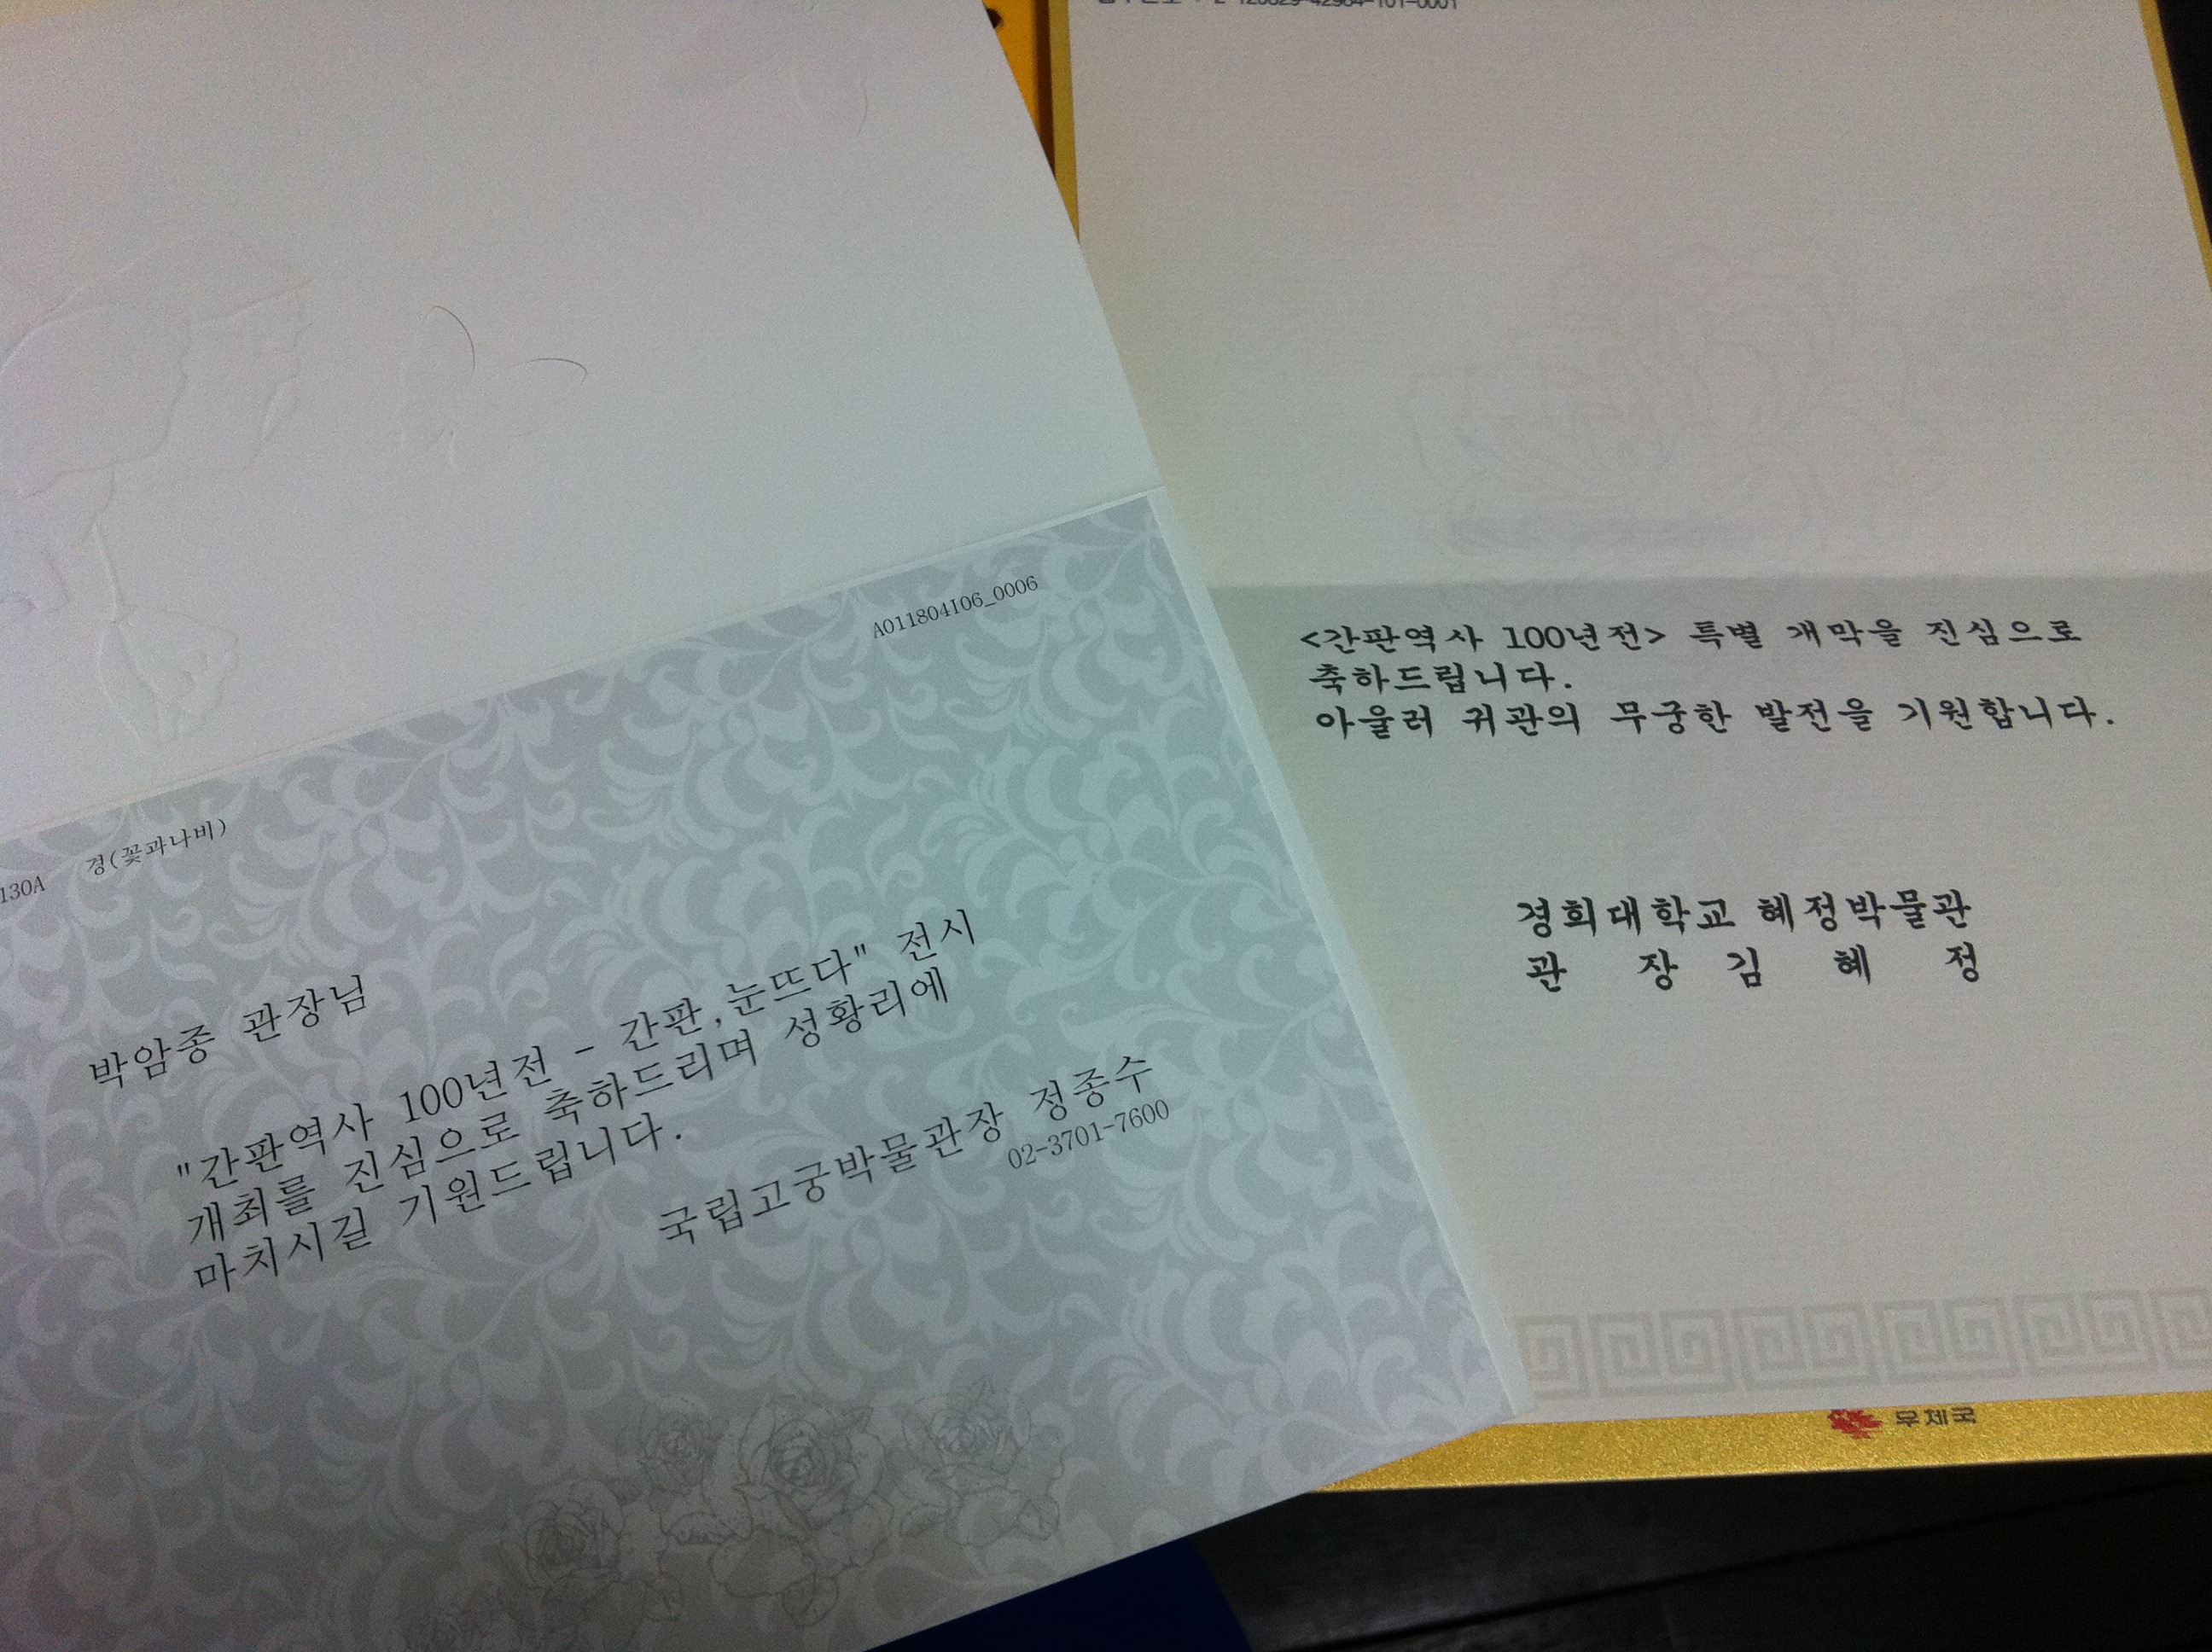 A011804I06_0006
130A 경(꽃과나비)
박암종 관장님
"간판역사 100년전 - 간판,눈뜨다" 전시
개최를 진심으로 축하드리며 성황리에
마치시길 기원드립니다.
국립고궁박물관장 정종수
02-3701-7600
<간판역사 100년전> 특별 개막을 진심으로
축하드립니다.
아울러 귀관의 무궁한 발전을 기원합니다.
경희대학교 혜정박물관
관 장 김 혜 정
우체국